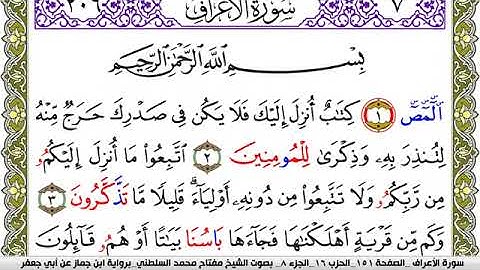 ٢٠٦ سُورَةُ الأَعْرَافِ ٧
بِسْمِ اللَّهِ الرَّحْمَٰنِ الرَّحِيمِ
الٓمٓصٓ ١ كِتَٰبٌ أُنزِلَ إِلَيْكَ فَلَا يَكُن فِي صَدْرِكَ حَرَجٌ مِّنْهُ
لِتُنذِرَ بِهِۦ وَذِكْرَىٰ لِلْمُومِنِينَ ٢ اتَّبِعُوا مَا أُنزِلَ إِلَيْكُمُۥ
مِن رَّبِّكُمُۥ وَلَا تَتَّبِعُوا مِن دُونِهِۦ أَوْلِيَاءَ ۗ قَلِيلًا مَّا تَذَّكَّرُونَ ٣
وَكَم مِّن قَرْيَةٍ أَهْلَكْنَٰهَا فَجَاءَهَا بَاسُنَا بَيَٰتًا أَوْ هُمُۥ قَائِلُونَ
سورة الأعراف _الصفحة ١٥١_ الحزب ١٦_ الجزء ٨_ بصوت الشيخ مفتاح محمد السلطني_برواية ابن جماز عن أبي جعفر